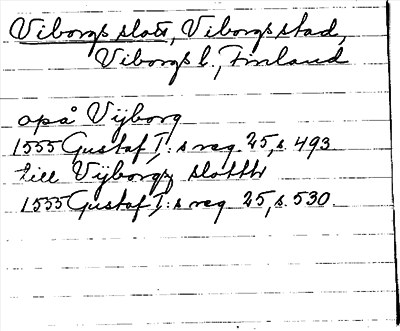 Viborgs slott, Viborgs stad,
Viborgs l., Finland
opå Vijborg
1555 Gustaf I:s reg 25, s. 493
till Vijborgz slotth
1555 Gustaf I:s reg 25, s. 530